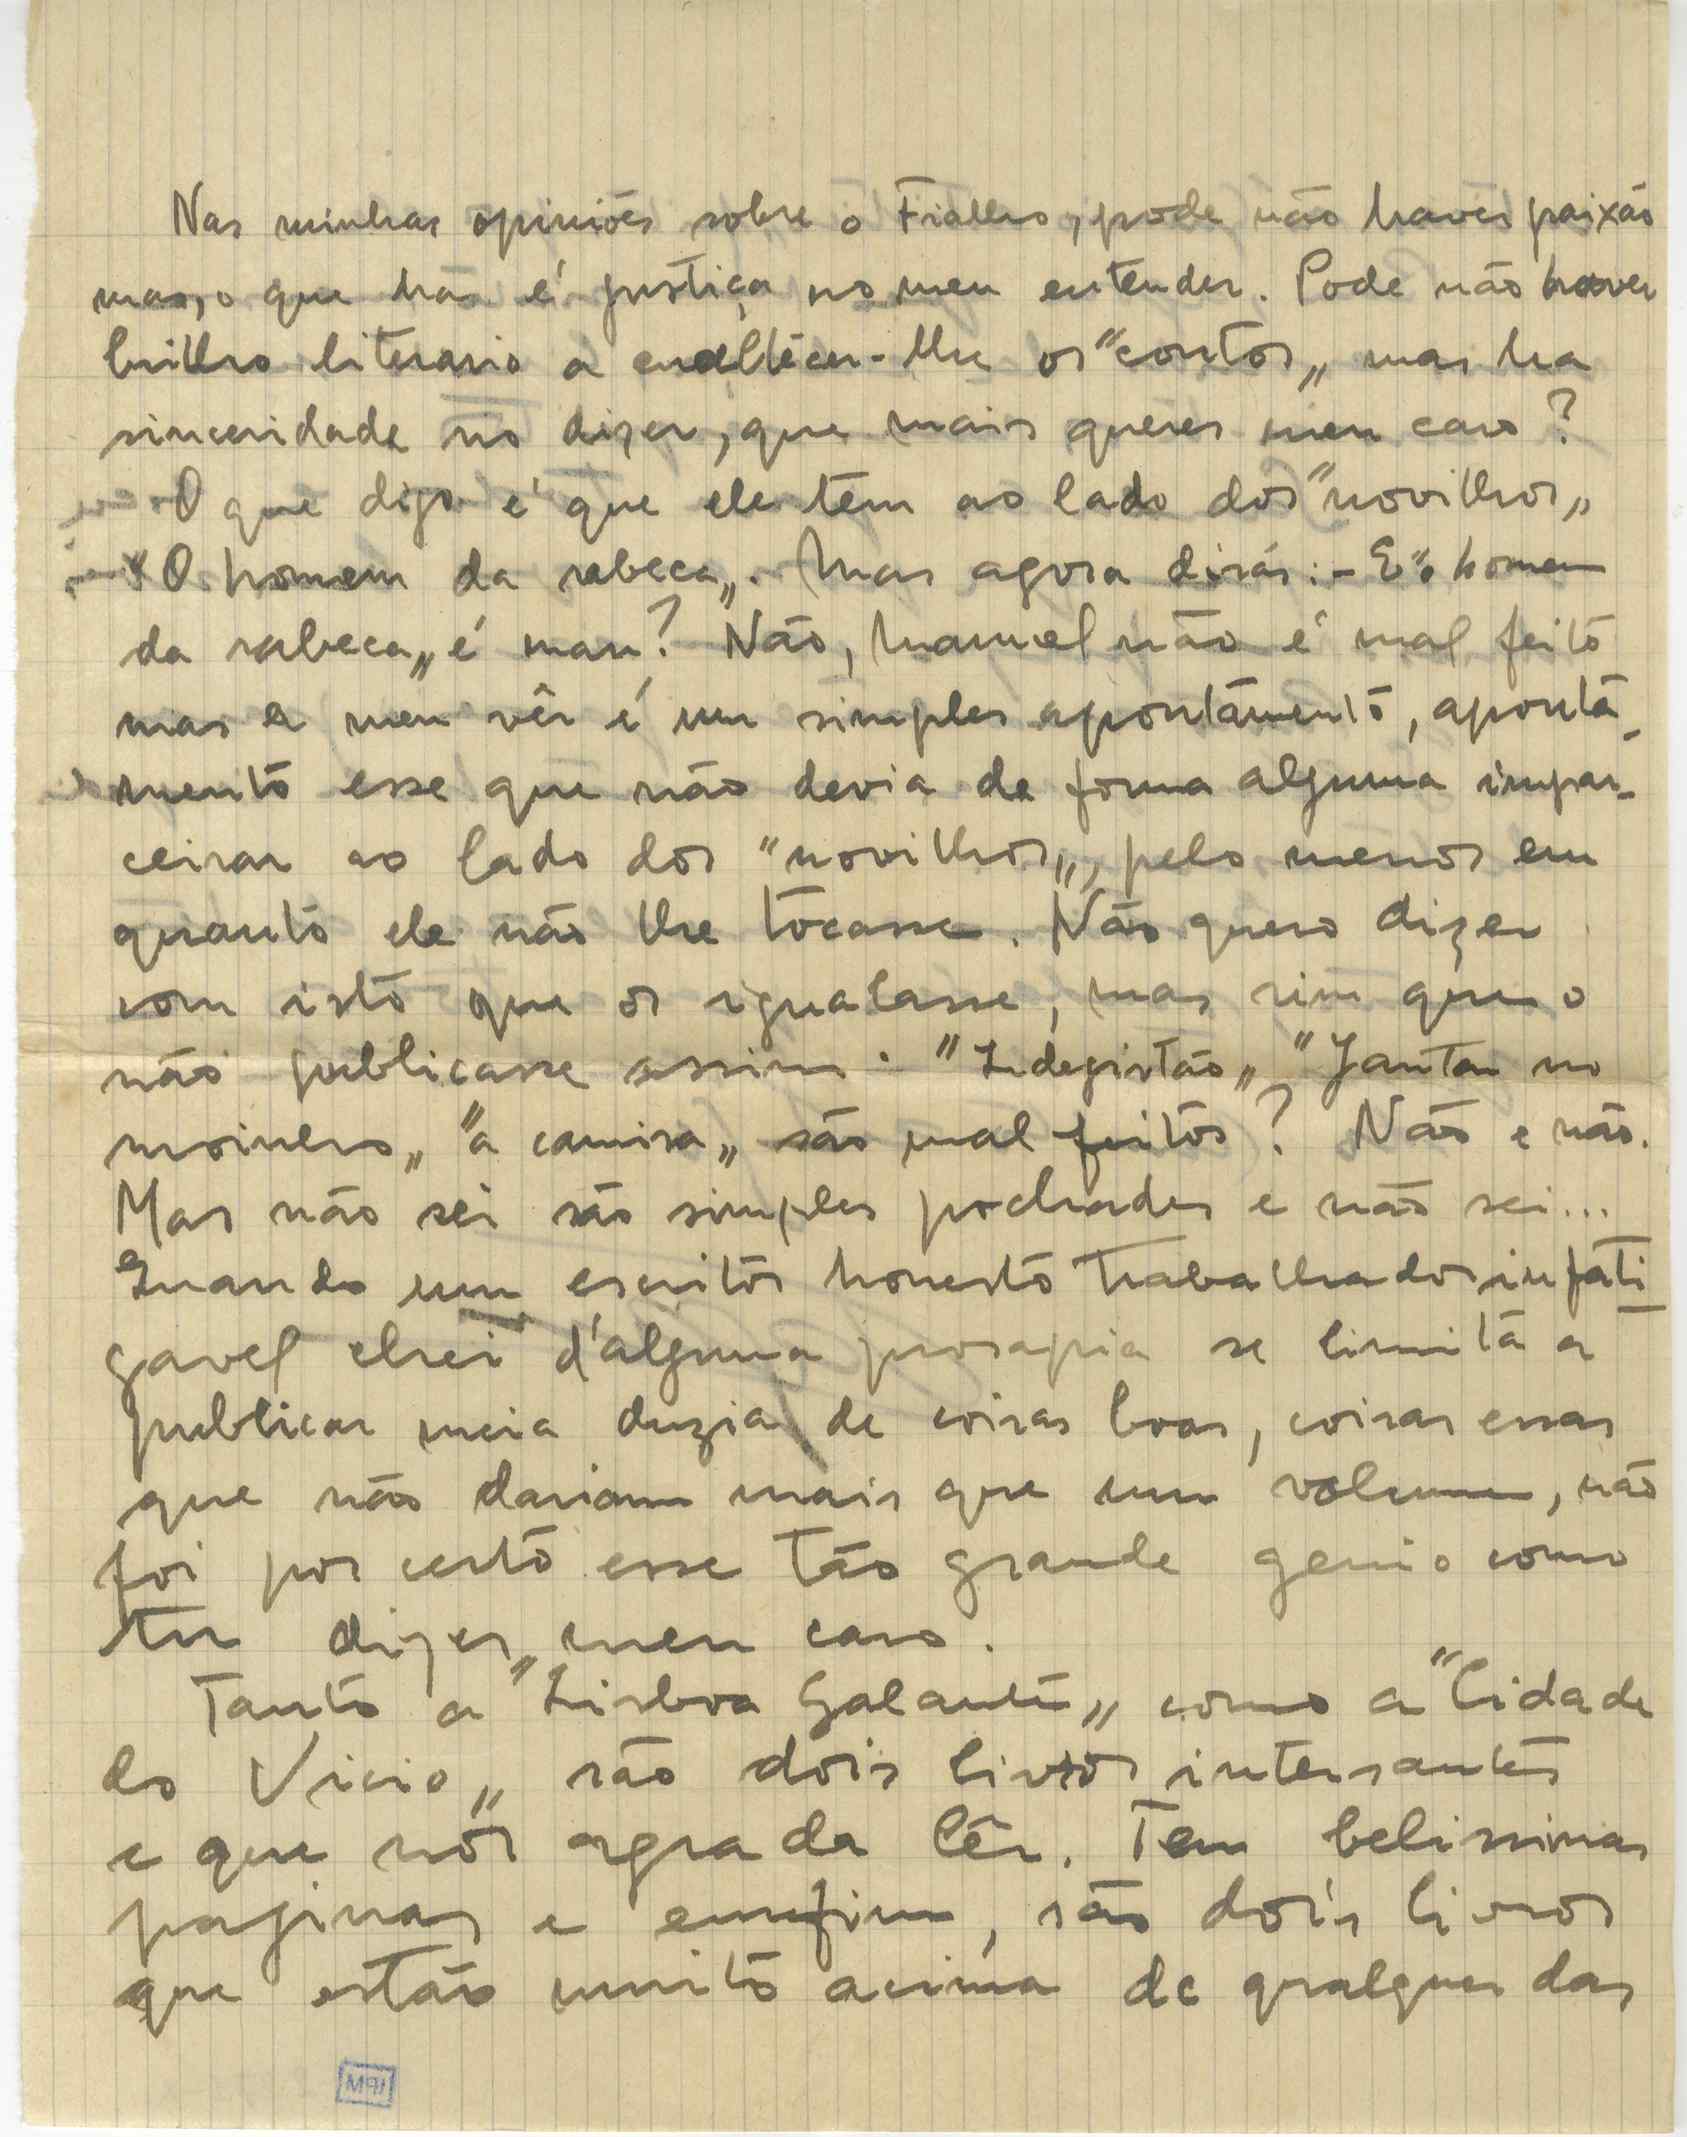 Nas minhas opiniões sobre o Fialho, pode não haver paixão
mas, o que há é justiça no meu entender. Pode não haver
brilho literario a enaltecer-lhe os "contos„ mas ha
sinceridade no dizer, que mais queres meu caro?
O que digo é que ele tem ao lado dos "novilhos„
"O homem da rabeca„. Mas agora dirás: - E "o homem
da rabeca„ é mau? Não, Manuel não é mal feito
mas a meu vêr é um simples apontamento, aponta-
mento esse que não devia de forma alguma impar-
ceirar ao lado dos "novilhos„, pelo menos em
quanto ele não lhe tocasse. Não quero dizer
com isto que os igualasse, mas sim que o
não publicasse assim. "Indegistão„ "Jantar no
moinero„ "a camisa„ são mal feitos? Não e não.
Mas não sei são simples pochades e não sei...
Quando um escritor honesto trabalhador infati
gavel chei d'alguma prosapia se limita a
publicar meia duzia de coisas boas, coisas essas
que não dariam mais que um volume, não
foi por certo esse tão grande genio como
tu dizes, meu caro.
Tanto a "Lisboa Galante„ como a "Cidade
do Vicio„ são dois livros intersantes
e que nos agrada lêr. Tem belissimas
paginas e emfim, são dois livros
que estão muito acima de qualquer das
IPM